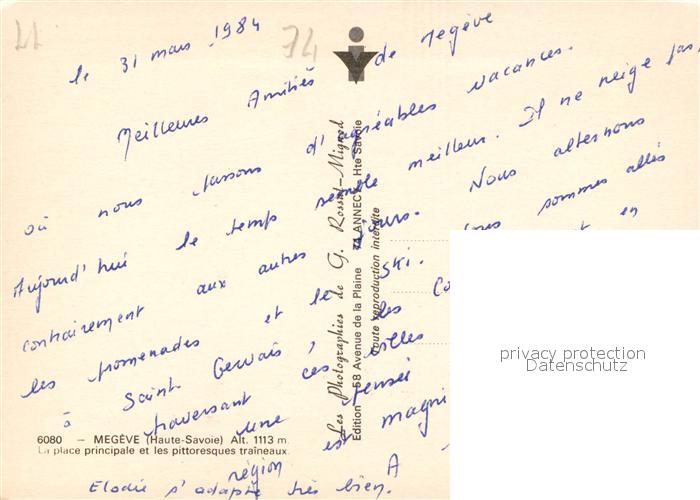 74
le 31 mars 1984
Meilleures Amitiés de Megève
où nous passons d'agréables vacances.
Aujourd'hui le temps semble meilleur. Il ne neige pas,
contrairement aux autres jours. Nous alternons
les promenades et le ski. Nous sommes allés
à Saint Gervais, en
traversant ces villes
une pensée
région est magni
Elodie s'adapte très bien. A
Les Photographies de G. Rossat-Mignod
Edition - 58 Avenue de la Plaine 74 ANNECY - Hte Savoie
Toute reproduction interdite
6080 - MEGÈVE (Haute-Savoie) Alt. 1113 m.
La place principale et les pittoresques traîneaux.
privacy protection
Datenschutz